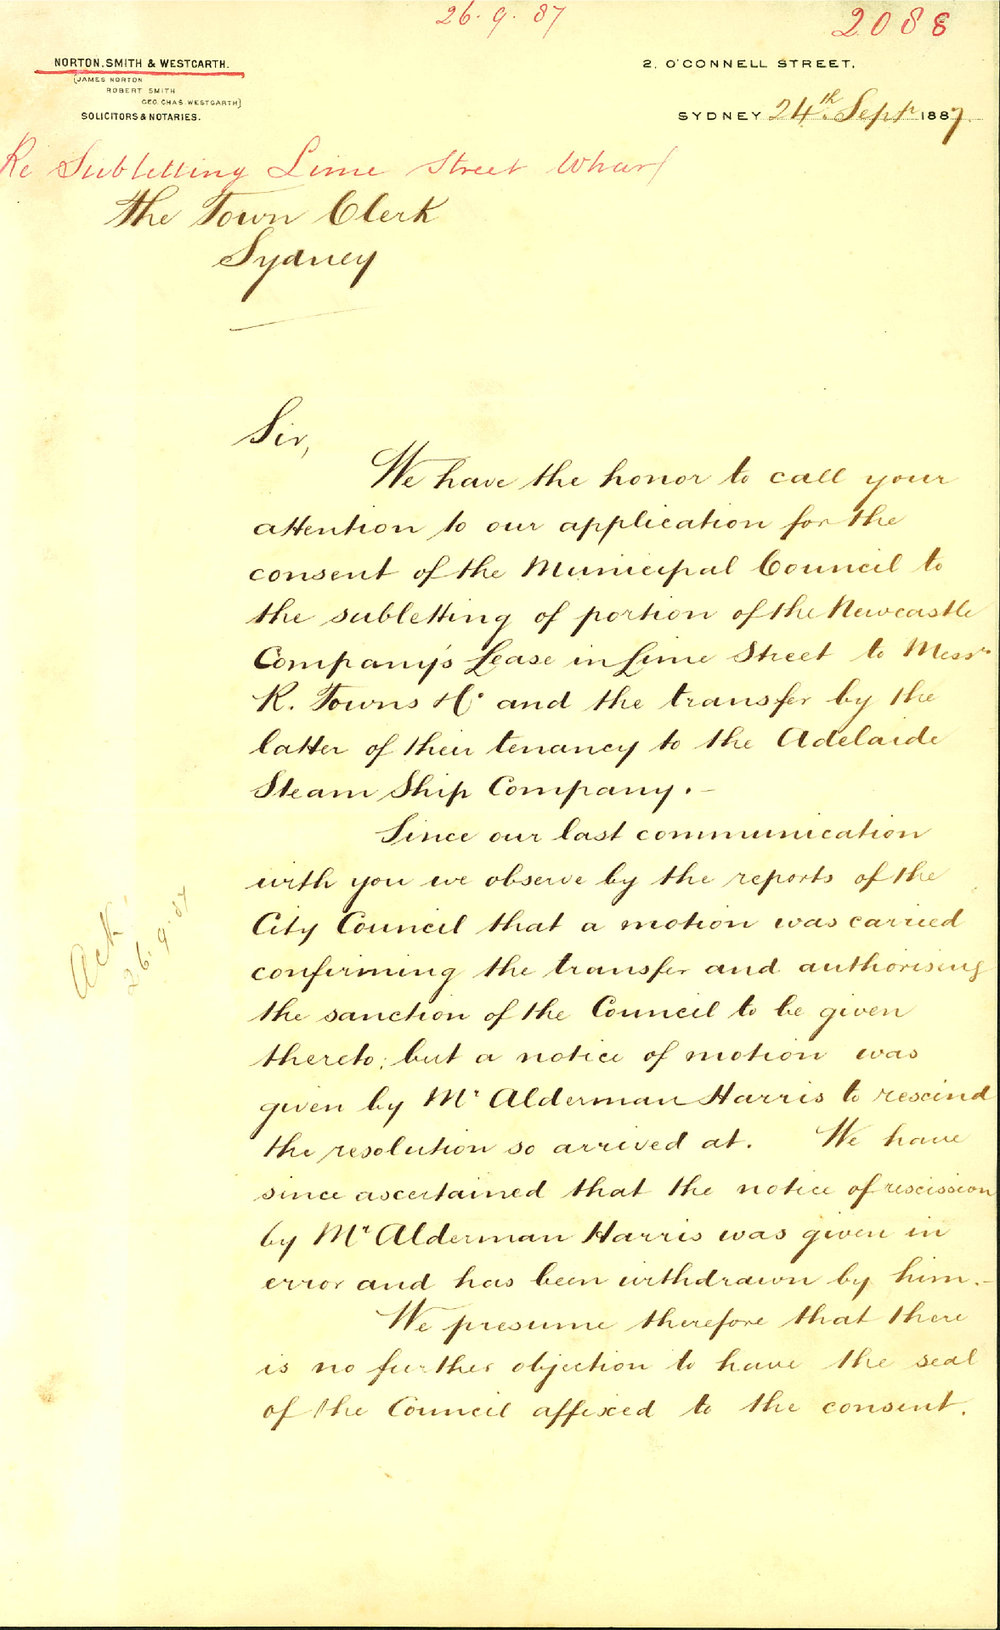 26.9.87
2088
NORTON, SMITH & WESTGARTH.
(JAMES NORTON
ROBERT SMITH
GEO. CHAS. WESTGARTH)
SOLICITORS & NOTARIES.
2, O'CONNELL STREET,
SYDNEY 24th Sept 1887.
Re Subletting Lime Street Wharf
The Town Clerk
Sydney
Sir,
We have the honor to call your
attention to our application for the
consent of the Municipal Council to
the subletting of portion of the Newcastle
Company's Lease in Lime Street to Messrs
R. Towns & Co and the transfer by the
latter of their tenancy to the Adelaide
Steam Ship Company.-
Since our last communication
with you we observe by the reports of the
City Council that a motion was carried
confirming the transfer and authorising
the sanction of the Council to be given
thereto; but a notice of motion was
given by Mr Alderman Harris to rescind
the resolution so arrived at. We have
since ascertained that the notice of rescission
by Mr Alderman Harris was given in
error and has been withdrawn by him.-
We presume therefore that there
is no further objection to have the seal
of the Council affixed to the consent.
Ack.
26.9.87